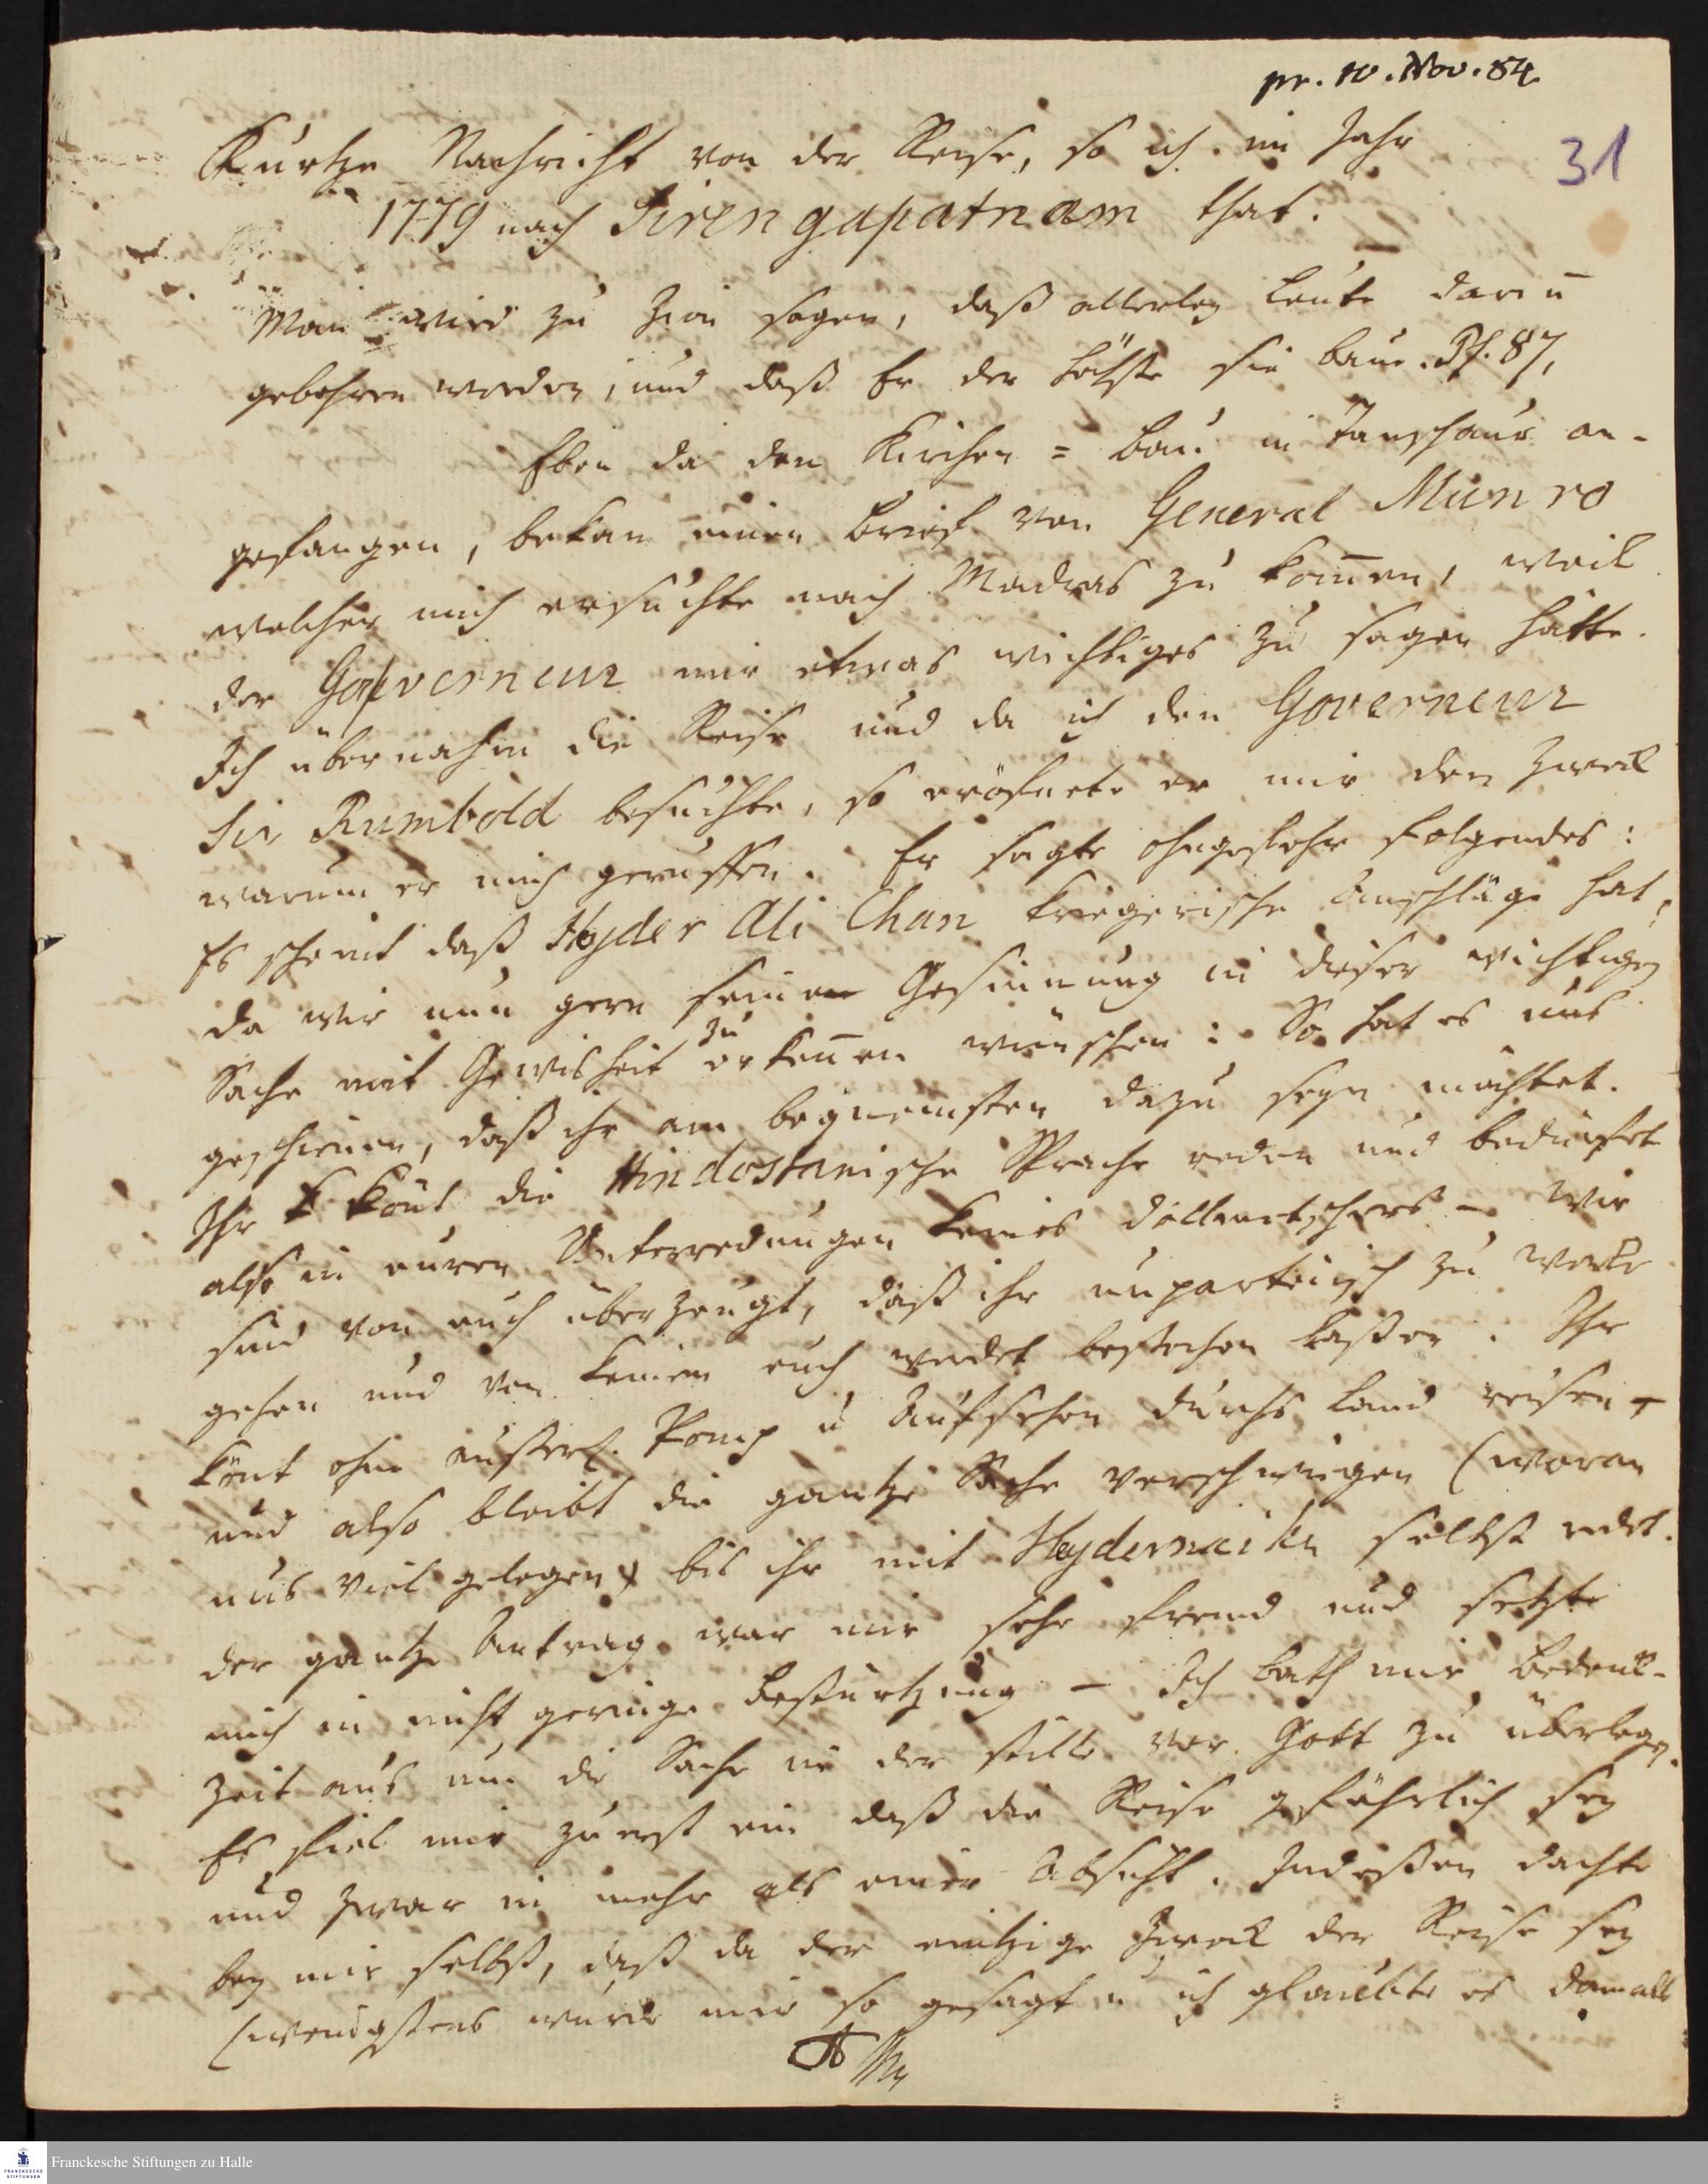 pr. 10. Nov. 84
31
Kurtze Nachricht von der Reise, so ich im Jahr
1779 nach Sirengapatnam that.
Man wird zu Zion sagen, daß allerley Leute dariñ
gebohren werden, und daß Er der Höchste sie baue. Ps. 87,
Eben da den Kirchen = Bau in Tanschaur an-
gefangen, bekam einen Brief von General Munro
welcher mich ersuchte nach Madras zu kom̄en, weil
der Gouverneur mir etwas wichtiges zu sagen hätte.
Ich übernahm die Reise und da ich den Governeur
Sir Rumbold besuchte, so eröfnete er mir den Zweck
warum er mich geruffen. Er sagte ohngefehr folgendes:
Es scheint daß Hyder Ali Chan kriegerische Anschläge hat,
da wir nun gern seine Gesinnung in dieser wichtigen
Sache mit Gewisheit zu erkeñen wünschen: So hat es uns
geschienen, daß ihr am bequemsten dazu seyn möchtet.
Ihr köñt die Hindostanische Sprache reden und bedürfet
also in euren Unterredungen keines Dollmetschers – Wir
sind von euch überzeugt, daß ihr unparteiisch zu Werke
gehen und von keinem euch werdet bestechen laßen. Ihr
köñt ohne äußerl. Pomp u Aufsehen durchs Land reisen –
und also bleibt die gantze Sache verschwiegen (woran
uns viel gelegen) bis ihr mit Hydernaiken selbst redet.
der gantze Antrag war mir sehr fremd und setzte
mich in nicht geringe Bestürtzung – Ich bath mir Bedenk-
zeit aus um die Sache in der stille vor Gott zu überlegen.
Es fiel mir zuerst ein daß die Reise gefährlich sey
und zwar in mehr als einer Absicht. Indeßen dachte
bey mir selbst, daß da der eintzige Zweck der Reise sey
(wenigstens wurde mir so gesagt u ich glaubte es damals
Franckesche Stiftungen zu Halle